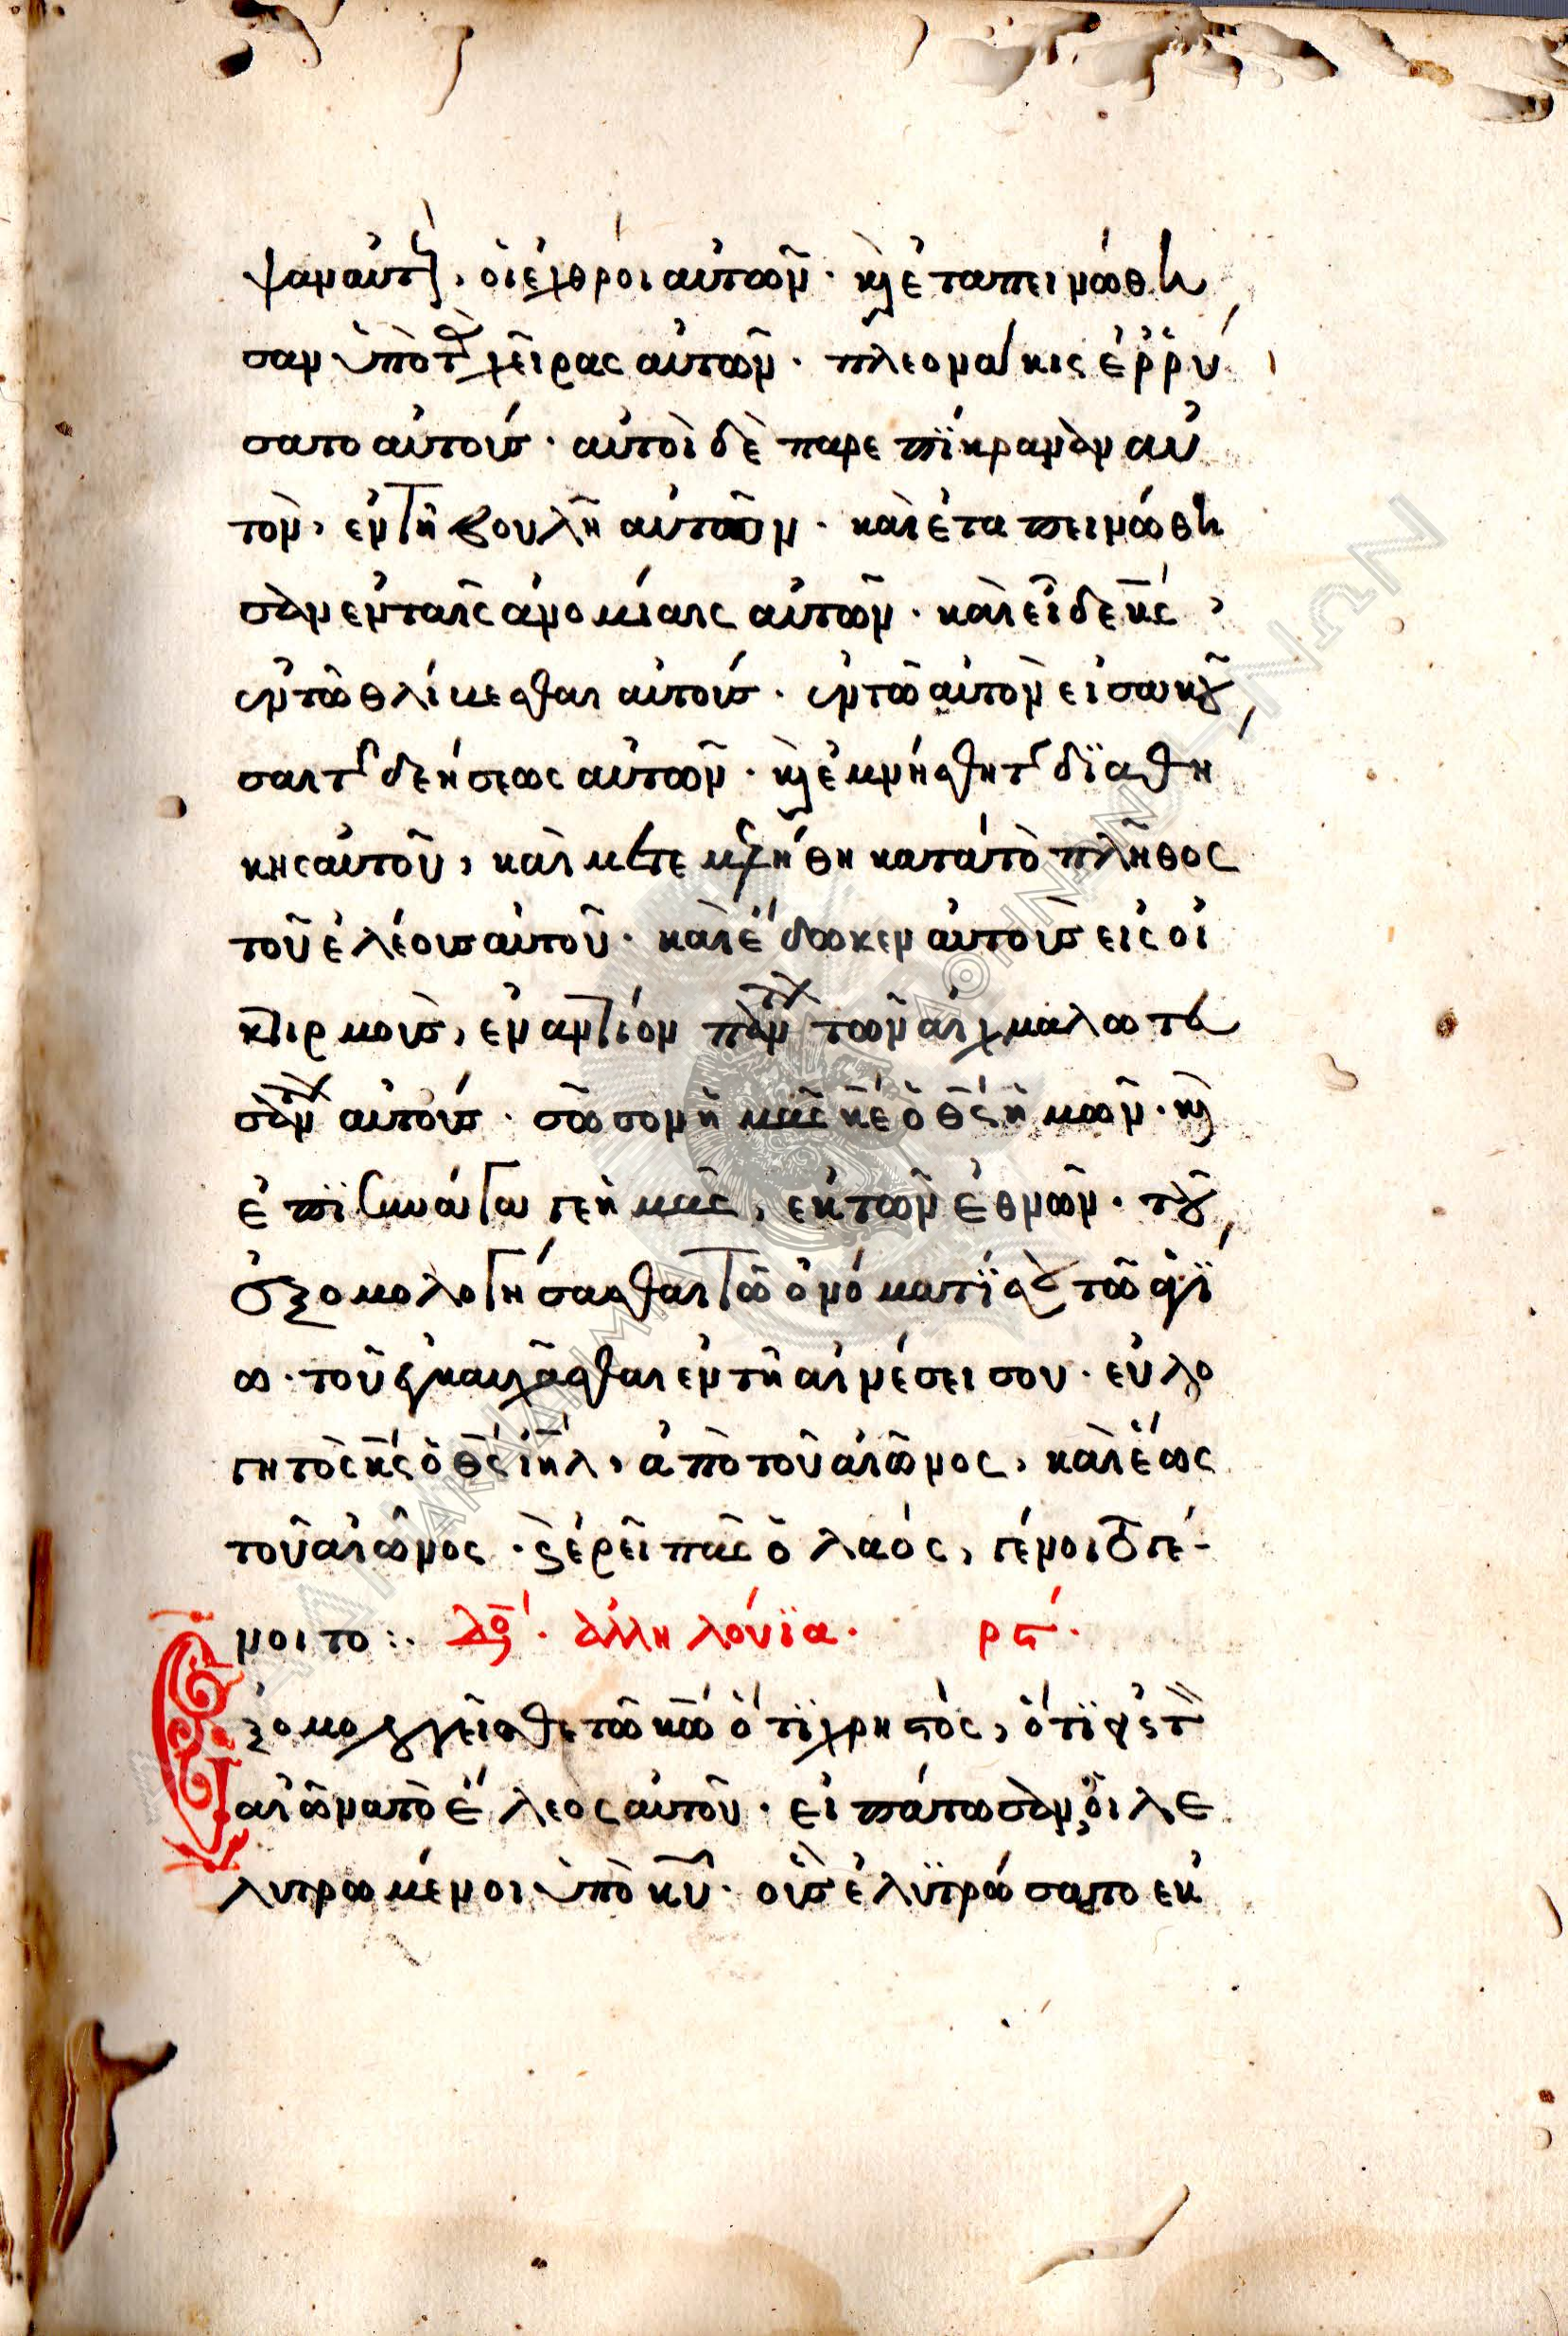 ψαν αὐτοὺς, οἱ ἐχθροὶ αὐτῶν. καὶ ἐταπεινώθη
σαν ὑπὸ τὰς χεῖρας αὐτῶν. πλεονάκις ἐρρύ
σατο αὐτούς. αὐτοὶ δὲ παρεπίκραναν αὐ
τὸν, ἐν τῇ βουλῇ αὐτῶν. καὶ ἐταπεινώθη
σαν ἐν ταῖς ἀνομίαις αὐτῶν. καὶ εἶδε κς,
ἐν τῷ θλίβεσθαι αὐτούς. ἐν τῷ αὐτὸν εἰσακοῦ
σαι τῆς δεήσεως αὐτῶν. καὶ ἐμνήσθη τῆς διαθή
κης αὐτοῦ, καὶ μετεμελήθη κατὰ τὸ πλῆθος
τοῦ ἐλέους αὐτοῦ. καὶ ἔδωκεν αὐτοὺς εἰς οἰ
κτιρμοὺς, ἐναντίον πάντων τῶν αἰχμαλωτευ
σάντων αὐτούς. σῶσον ἡμᾶς κε ὁ θς ἡμῶν. καὶ
ἐπισυνάγαγε ἡμᾶς, ἐκ τῶν ἐθνῶν. τοῦ
ἐξομολογήσασθαι τῷ ὀνόματί σου τῷ ἁγί
ω. τοῦ ἐγκαυχᾶσθαι ἐν τῇ αἰνέσει σου. εὐλο
γητὸς κς ὁ θς ιηλ, ἀπὸ τοῦ αἰῶνος, καὶ ἕως
τοῦ αἰῶνος. καὶ ἐρεῖ πᾶς ὁ λαός, γένοιτο γέ-
νοιτο:. δόξα. ἀλληλούϊα. ρϛ.
Ἐξομολογεῖσθε τῷ κω ὅτι χρηστὸς, ὅτι εἰς τὸν
αἰῶνα τὸ ἔλεος αὐτοῦ. εἰπάτωσαν, οἱ λε
λυτρωμένοι ὑπὸ κυ. οὓς ἐλυτρώσατο ἐκ